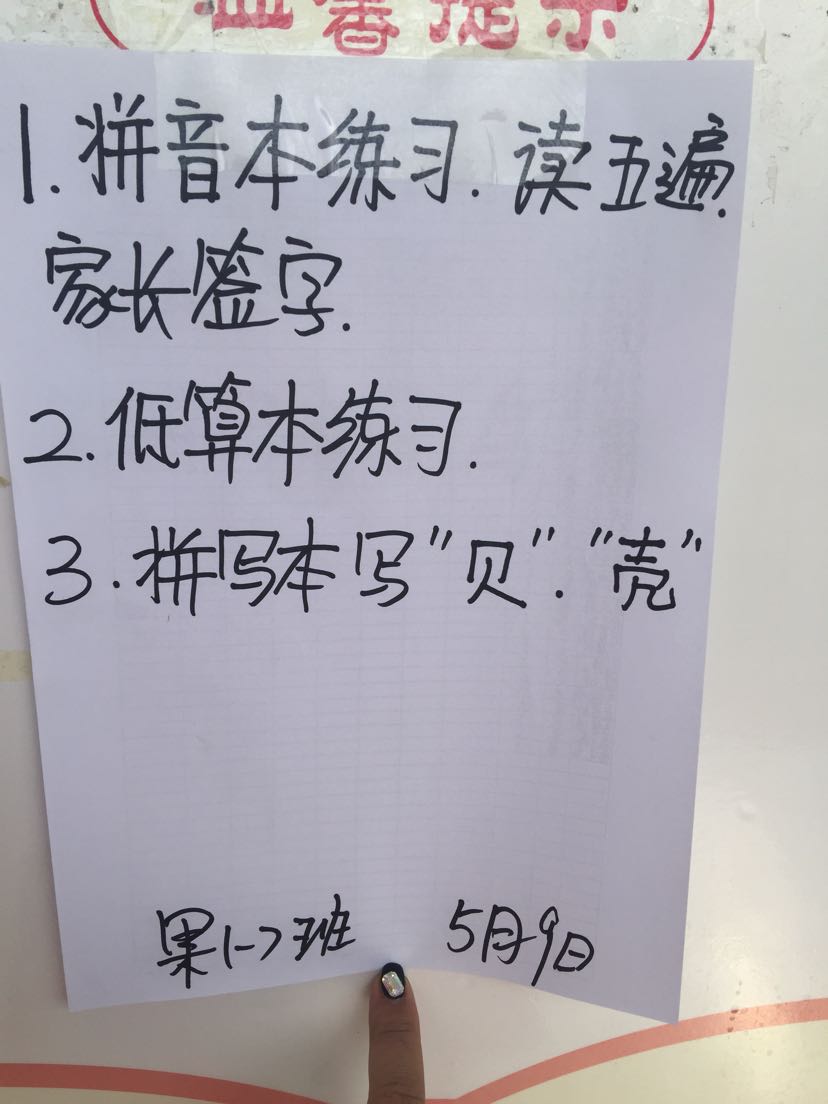 温馨提示
1. 拼音本练习. 读五遍.
家长签字.
2. 低算本练习.
3. 拼写本写"贝". "壳"
果(一)班 5月9日